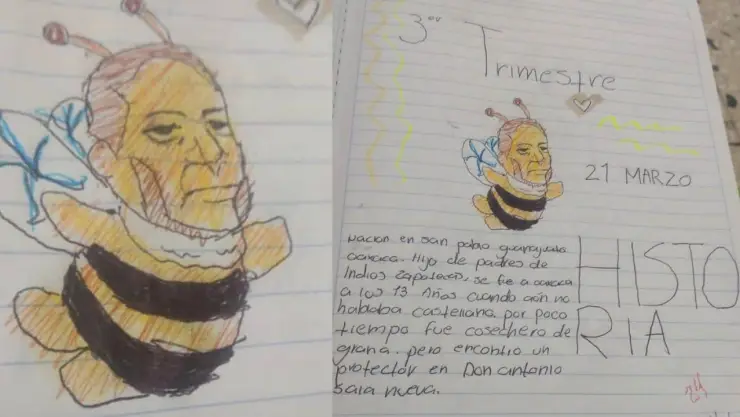 3er Trimestre
21 MARZO
HISTO
RIA
nacion en san pablo guanajuato
oaxaca. Hijo de padres de
Indios zapotecos, se fue a oaxaca
a los 13 Años cuando aún no
hablaba castellano por poco
tiempo fue cosechero de
grana. pero encontro un
protector en Don antonio
sala nueva.